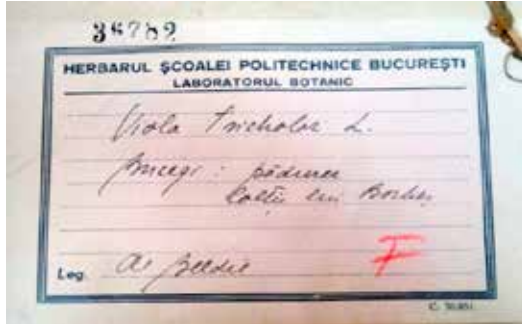 36782
HERBARUL ȘCOALEI POLITECHNICE BUCUREȘTI
LABORATORUL BOTANIC
Viola tricholor L.
Bucegi : pădurea
Colții lui Barbeș
Leg. Al Beldie
F